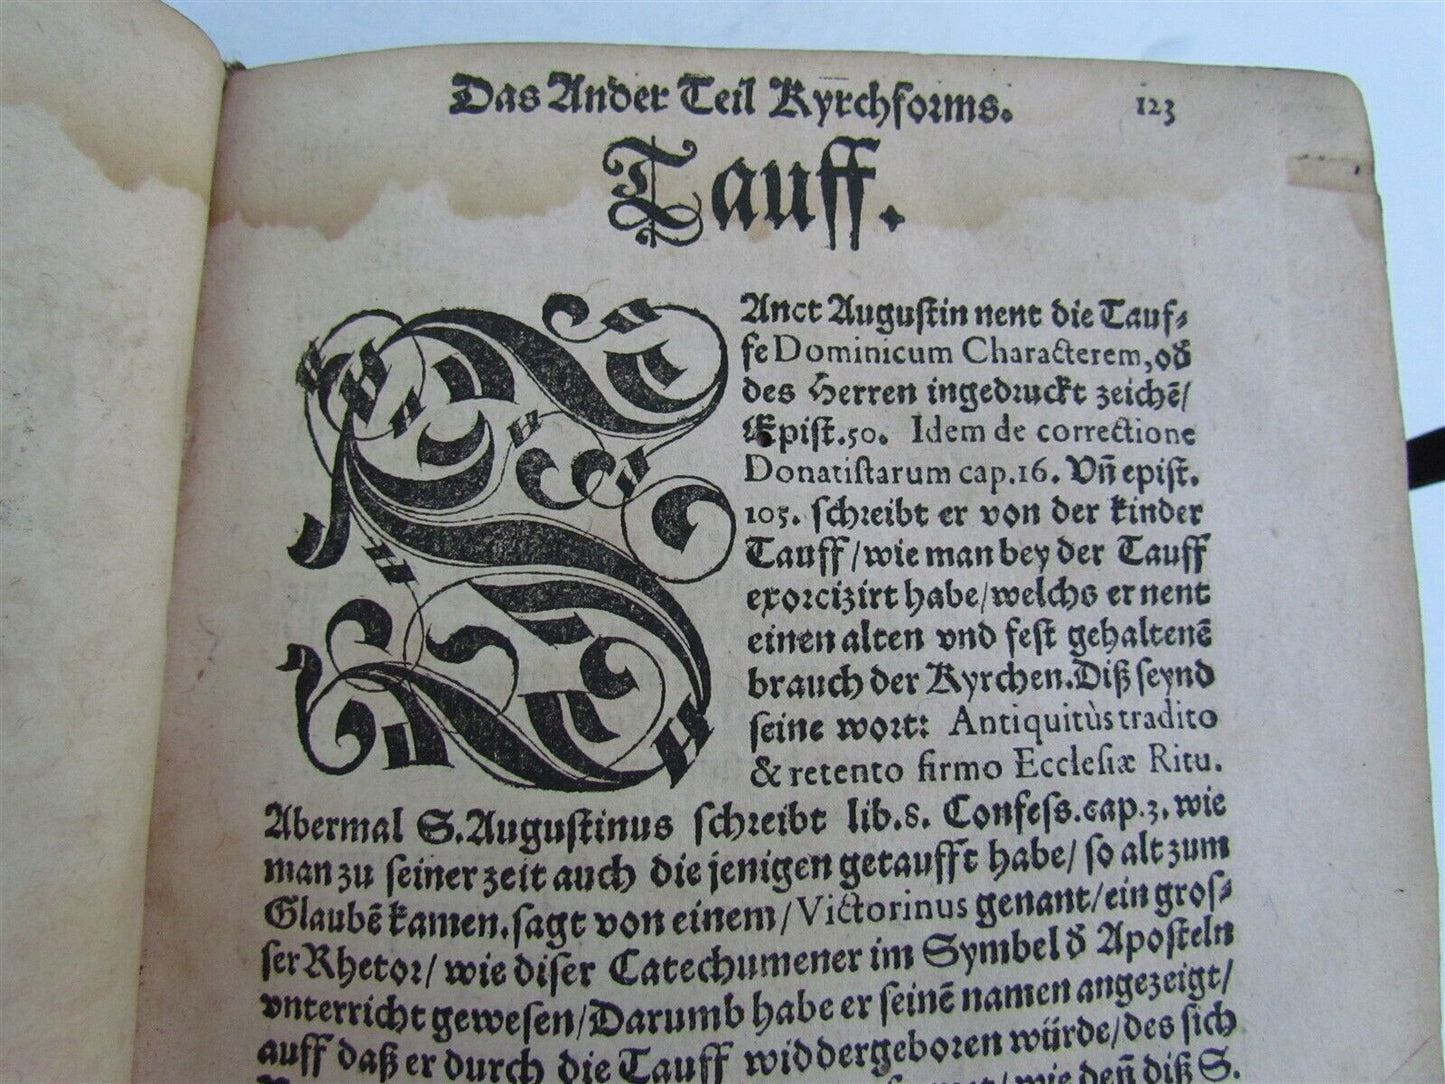 Das Ander Teil Kyrchforms. 123
Tauff.
SAnct Augustin nent die Tauf⸗
fe Dominicum Characterem, oď
des Herren ingedruckt zeichē/
Epist. 50. Idem de correctione
Donatistarum cap. 16. Vñ epist.
105. schreibt er von der kinder
Tauff/ wie man bey der Tauff
exorcizirt habe/ welchs er nent
einen alten vnd fest gehaltenē
brauch der Kyrchen. Diß seynd
seine wort: Antiquitùs tradito
& retento firmo Ecclesiæ Ritu.
Abermal S. Augustinus schreibt lib. 8. Confess. cap. 3. wie
man zu seiner zeit auch die jenigen getaufft habe/ so alt zum
Glaubē kamen. sagt von einem/ Victorinus genant/ ein gros⸗
ser Rhetor/ wie diser Catechumener im Symbel ď Aposteln
vnterricht gewesen/ Darumb habe er seinē namen angezeigt/
auff daß er durch die Tauff widdergeboren würde/ des sich
wie deñ diß S.